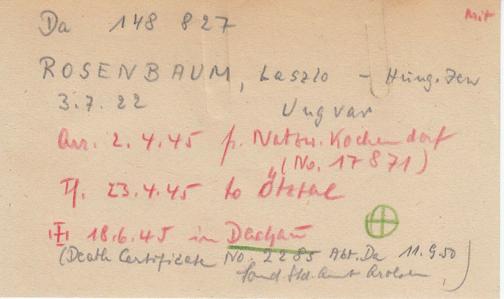 Mit
Da 148 827
ROSENBAUM, Laszlo - Hung. Jew
3.7.22 Ungvar
Arr. 2.4.45 f. Natzw. Kochendorf
(No. 17871)
Tf. 23.4.45 to Ötztal
18.6.45 in Dachau
(Death Certificate No. 2285 Abt. Da 11.9.50
Sond. Std. Amt Arolsen)